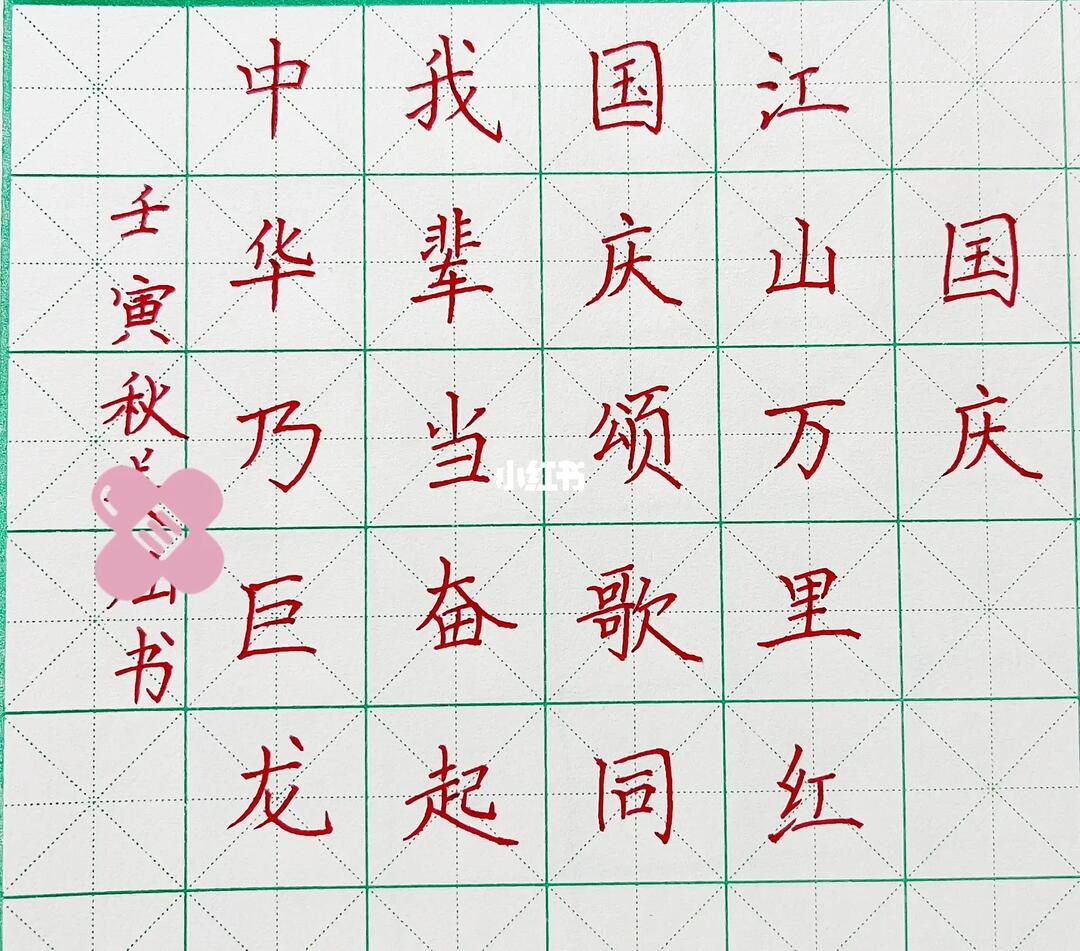 国庆
江山万里红
国庆颂歌同
我辈当奋起
中华乃巨龙
壬寅秋书
小红书